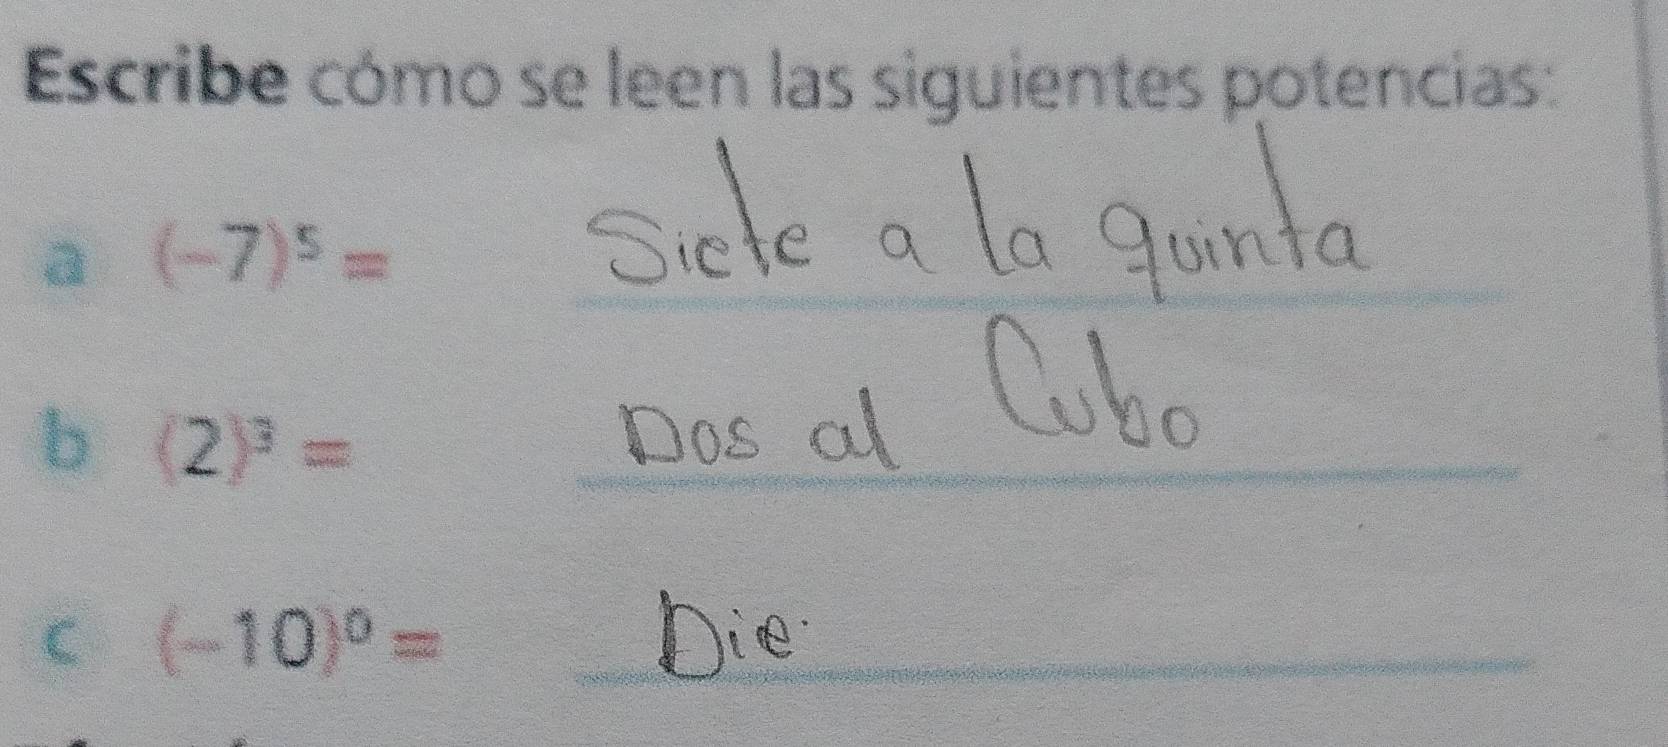 Escribe cómo se leen las siguientes potencias:
a (-7)⁵ = Siete a la quinta
b (2)³ = Dos al Cubo
c (-10)⁰ = Die